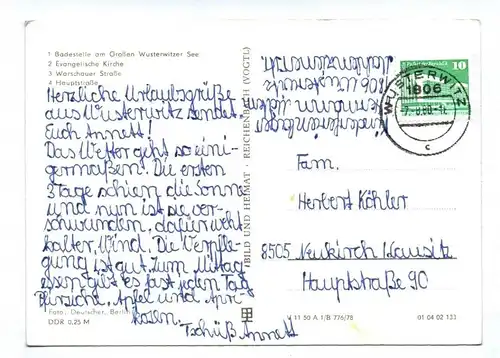 1 Badestelle am Großen Wusterwitzer See
2 Evangelische Kirche
3 Warschauer Straße
4 Hauptstraße
Herzliche Urlaubsgrüße
aus Wusterwitz sendet
Euch Annett!
Das Wetter geht so eini-
germaßen! Die ersten
3 Tage schien die Sonne
und nun ist sie ver-
schwunden, dafür weht
kalter Wind. Die Verpfle-
gung ist gut. Zum Mittag-
essen gibt es fast jeden Tag
Pfirsich, Apfel und Apri-
kosen.
Tschüß Annett
Foto: Deutscher, Berlin
DDR 0,25 M
BILD UND HEIMAT · REICHENBACH (VOGTL)
Kinderferienlager
1806 Wusterwitz
10
WUSTERWITZ
1806
c
Fam.
Herbert Köhler
8505 Neukirch Lausitz
Hauptstraße 90
11 50 A 1/B 776/78
01 04 02 133